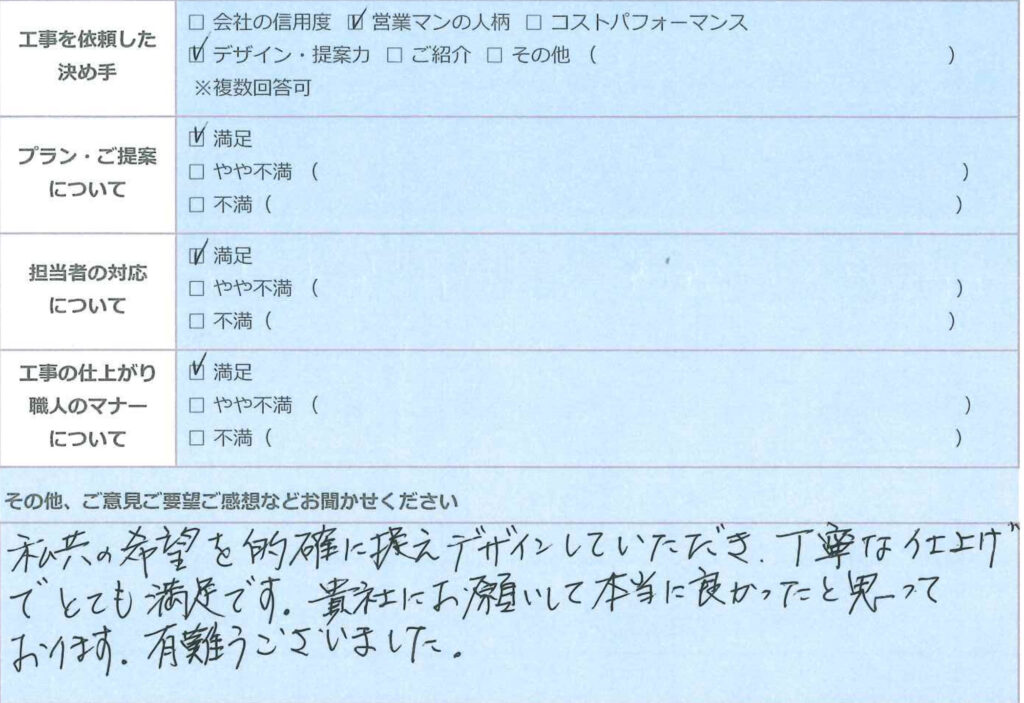 工事を依頼した
決め手
□ 会社の信用度 ☑ 営業マンの人柄 □ コストパフォーマンス
☑ デザイン・提案力 □ ご紹介 □ その他（ ）
※複数回答可
プラン・ご提案
について
☑ 満足
□ やや不満（ ）
□ 不満（ ）
担当者の対応
について
☑ 満足
□ やや不満（ ）
□ 不満（ ）
工事の仕上がり
職人のマナー
について
☑ 満足
□ やや不満（ ）
□ 不満（ ）
その他、ご意見ご要望ご感想などお聞かせください
私共の希望を的確に捉えデザインしていただき、丁寧な仕上げ
でとても満足です。貴社にお願いして本当に良かったと思って
おります。有難うございました。